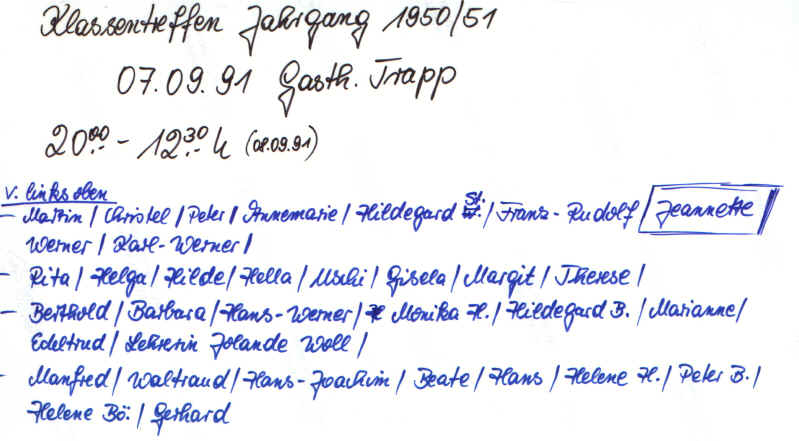 Klassentreffen Jahrgang 1950/51
07.09.91 Gasth. Trapp
20.00 - 12.30 h (08.09.91)
v. links oben
- Martin / Christel / Peter / Annemarie / Hildegard St. / Franz-Rudolf / Jeannette
Werner / Karl-Werner /
- Rita / Helga / Hilde / Hella / Uschi / Gisela / Margit / Therese /
- Berthold / Barbara / Hans-Werner / Monika H. / Hildegard B. / Marianne /
Edeltrud / Lehrerin Jolande Woll /
- Manfred / Waltraud / Hans-Joachim / Beate / Hans / Helene H. / Peter B. /
Helene Bö. / Gerhard